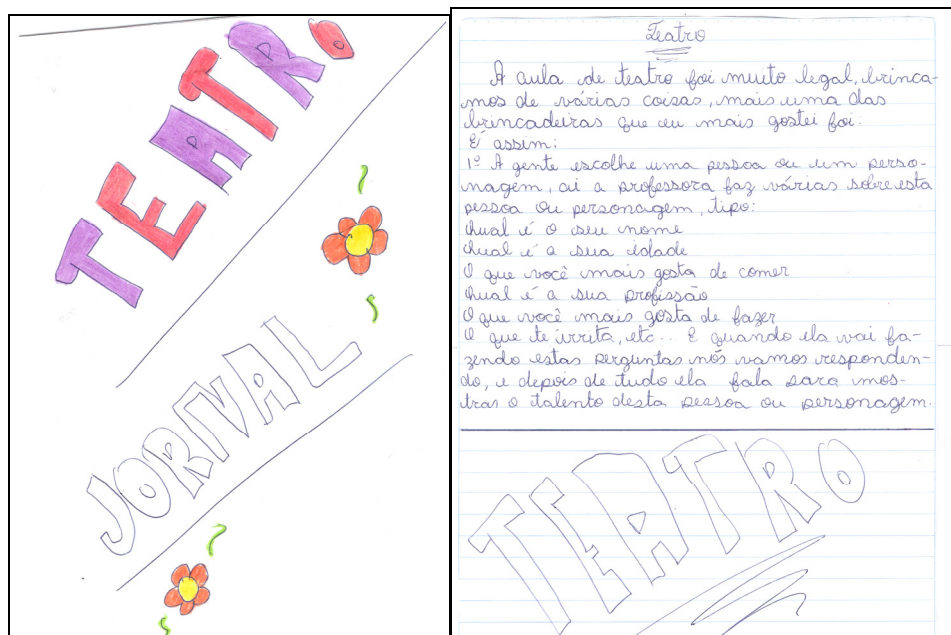 TEATRO
JORNAL
Teatro
A aula de teatro foi muito legal, brinca-
mos de várias coisas, mais uma das
brincadeiras que eu mais gostei foi:
É assim:
1º A gente escolhe uma pessoa ou um perso-
nagem, aí a professora faz várias sobre esta
pessoa ou personagem, tipo:
Qual é o seu nome
Qual é a sua idade
O que você mais gosta de comer
Qual é a sua profissão
O que você mais gosta de fazer
O que te irrita, etc... E quando ela vai fa-
zendo estas perguntas nós vamos responden-
do, e depois de tudo ela fala para mos-
trar o talento desta pessoa ou personagem.
TEATRO